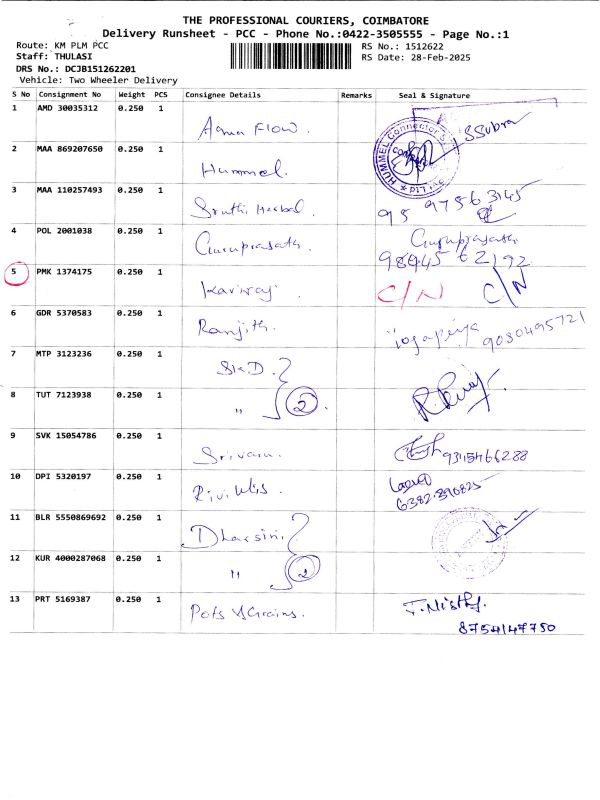 THE PROFESSIONAL COURIERS, COIMBATORE
Delivery Runsheet - PCC - Phone No.:0422-3505555 - Page No.:1
Route: KM PLM PCC RS No.: 1512622
Staff: THULASI RS Date: 28-Feb-2025
DRS No.: DCJB151262201
Vehicle: Two Wheeler Delivery
S No Consignment No Weight PCS Consignee Details Remarks Seal & Signature
1 AMD 30035312 0.250 1 Aqua Flow. SSubra
2 MAA 869207650 0.250 1 Hummel.
3 MAA 110257493 0.250 1 Sruthi Herbal. 95 97563145
4 POL 2001038 0.250 1 Guruprasath. Guruprasath
98945 62192
5 PMK 1374175 0.250 1 Kaviraj. C/N C/N
6 GDR 5370583 0.250 1 Ranjith. 9080495721
7 MTP 3123236 0.250 1
8 TUT 7123938 0.250 1 " 2
9 SVK 15054786 0.250 1 Srivaru. 9345466288
10 DPI 5320197 0.250 1 6382390825
11 BLR 5550869692 0.250 1 Dharsini
12 KUR 4000287068 0.250 1 " 2
13 PRT 5169387 0.250 1 Pots & Grains.
8754147750